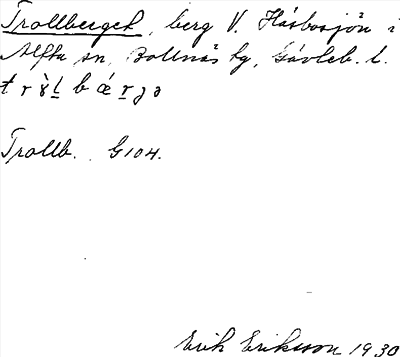 Trollberget, berg V. Håsbosjön i
Alfta sn, Bollnäs tg, Gävleb. l.
Trollb. G104.
Erik Eriksson 1930